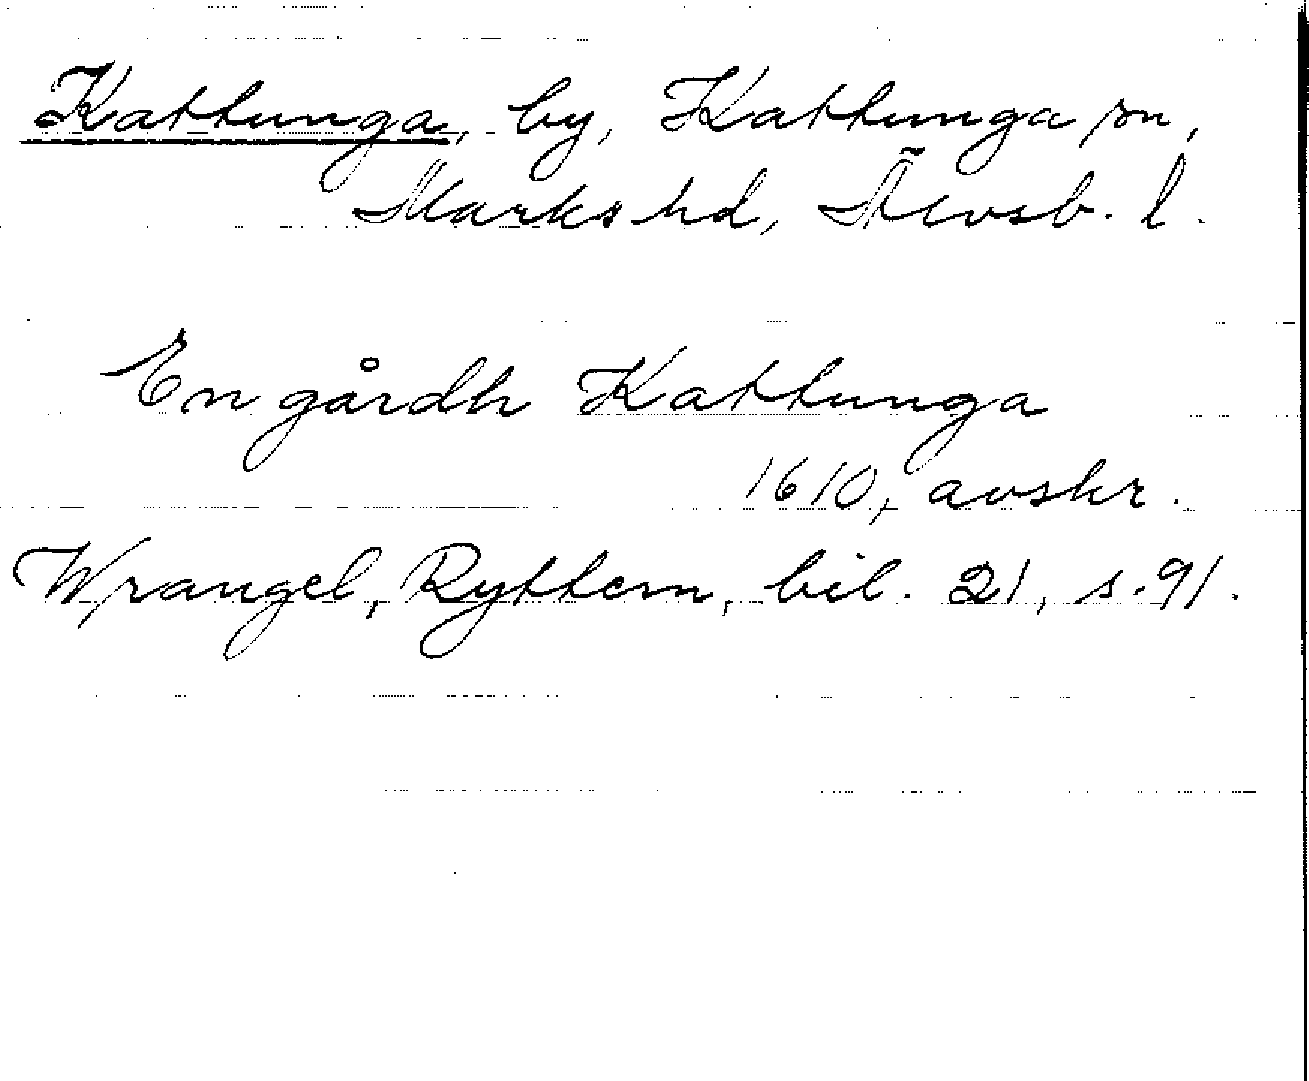 Kattunga, by, Kattunga sn,
Marks hd, Älvsb. l.
En gårdh Kattunga
1610, avskr.
Wrangel, Ryttern, bil. 21, s. 91.